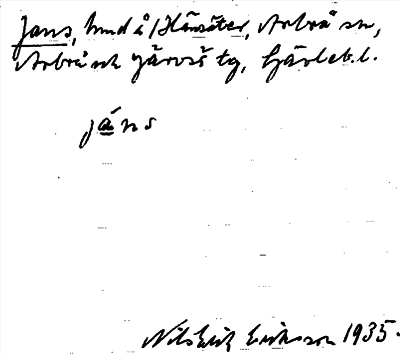 Jans, hund å Hänsäter, Arbrå sn,
Arbrå och Järvsö tg, Gävleb. l.
jàns
Nils Erik Eriksson 1935.